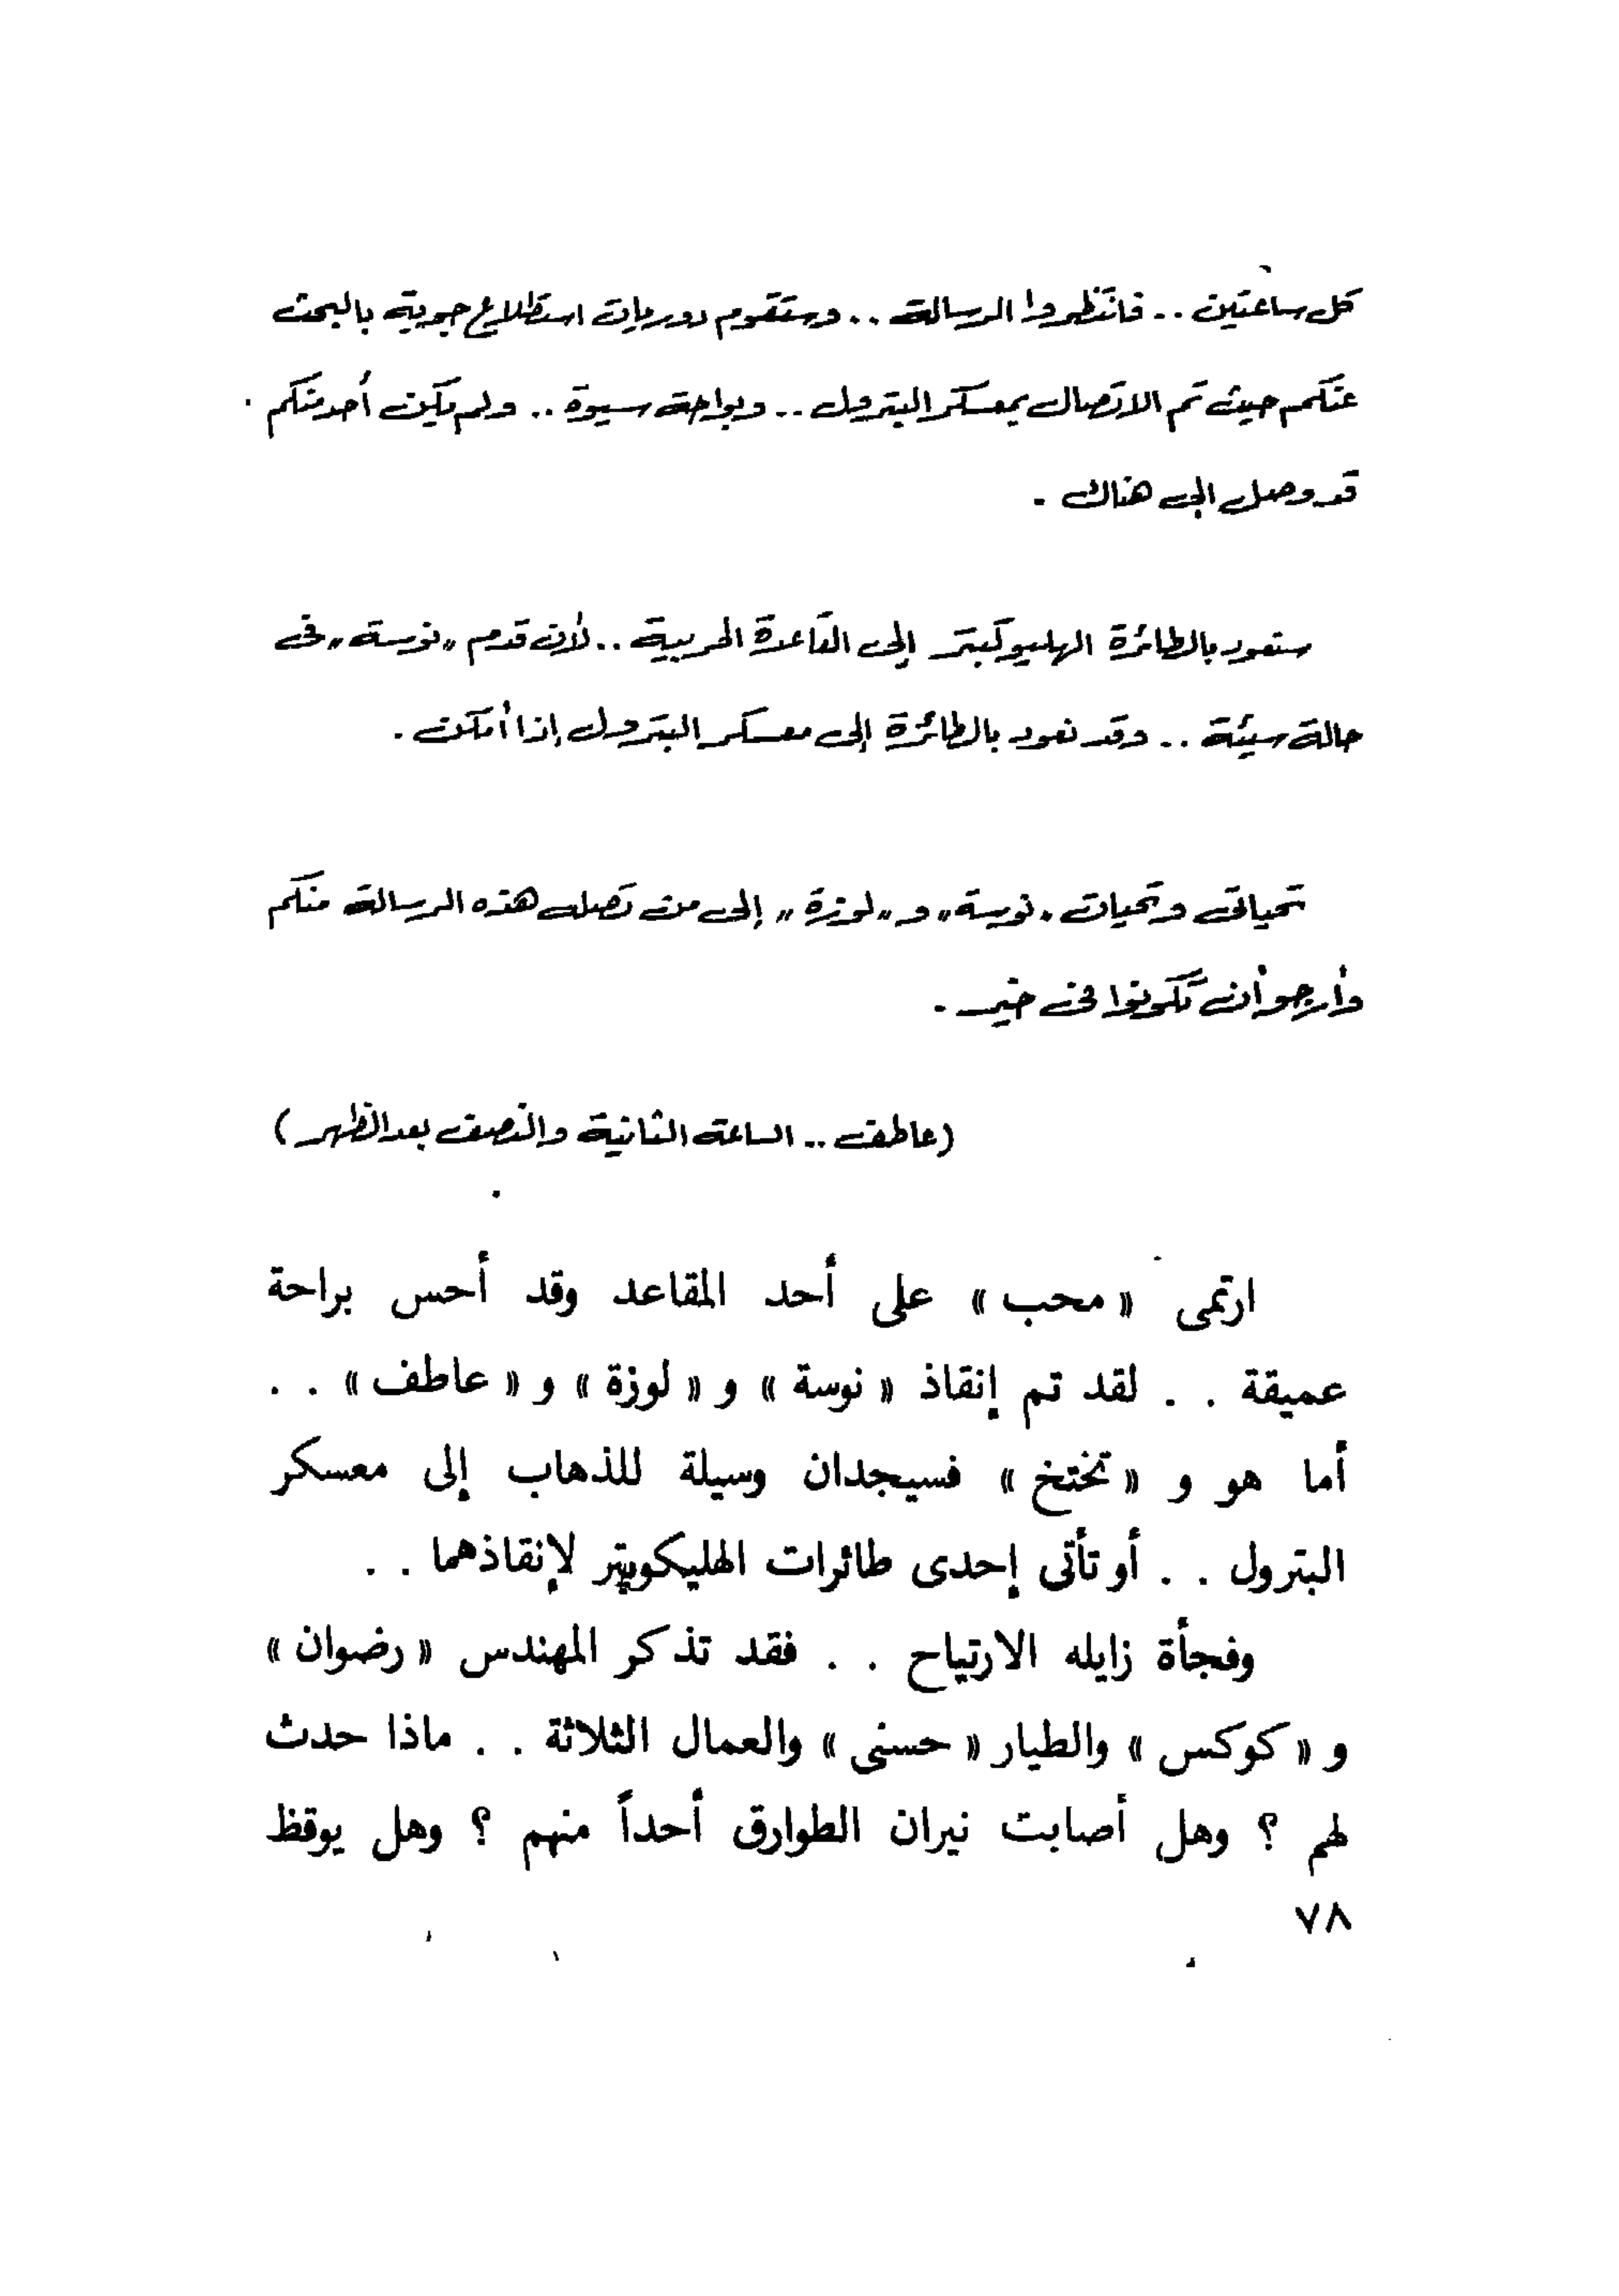 كل ساعتين .. فانتظروا الرسالة .. وستقوم دوريات استطلاع جوية بالبحث
عنكم حيث تم الاتصال بمعسكر البترول .. وبواحة سيوة .. ولم يكن أحد منكم
قد وصل إلى هناك .
ستعود بالطائرة الهليوكبتر إلى القاعدة الحربية .. لأن قدم «نوسة» فى
حالة سيئة .. وقد نعود بالطائرة إلى معسكر البترول إذا أمكن .
تحياتى وتحيات «نوسة» و«لوزة» إلى من تصله هذه الرسالة منكم
وأرجو أن تكونوا فى خير .
(عاطف .. الساعة الثانية والنصف بعد الظهر)
ارتمى « محب » على أحد المقاعد وقد أحس براحة
عميقة . . لقد تم إنقاذ « نوسة » و « لوزة » و « عاطف » . .
أما هو و « تختخ » فسيجدان وسيلة للذهاب إلى معسكر
البترول . . أو تأتى إحدى طائرات الهليكوبتر لإنقاذهما . .
وفجأة زايله الارتياح . . فقد تذكر المهندس « رضوان »
و « كوكس » والطيار « حسنى » والعمال الثلاثة . . ماذا حدث
لهم ؟ وهل أصابت نيران الطوارق أحداً منهم ؟ وهل يوقظ
٧٨